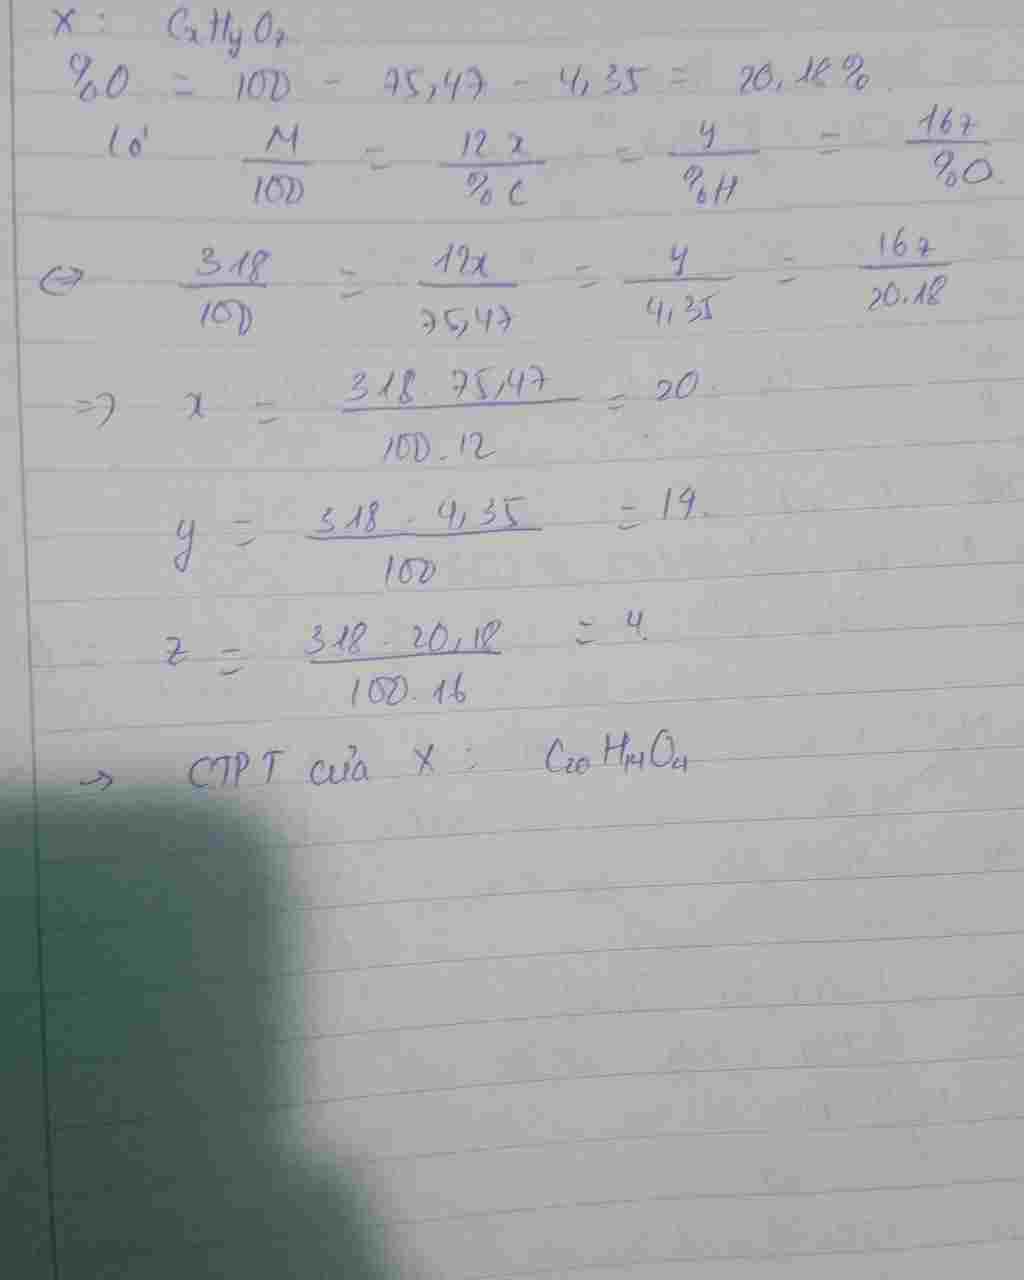 X: CxHyOz
%O = 100 - 75,47 - 4,35 = 20,18%
Có M/100 = 12x/%C = y/%H = 16z/%O
<=> 318/100 = 12x/75,47 = y/4,35 = 16z/20.18
=> x = 318.75,47/100.12 = 20
y = 318.4,35/100 = 14.
z = 318.20,18/100.16 = 4.
-> CTPT của X: C20H14O4